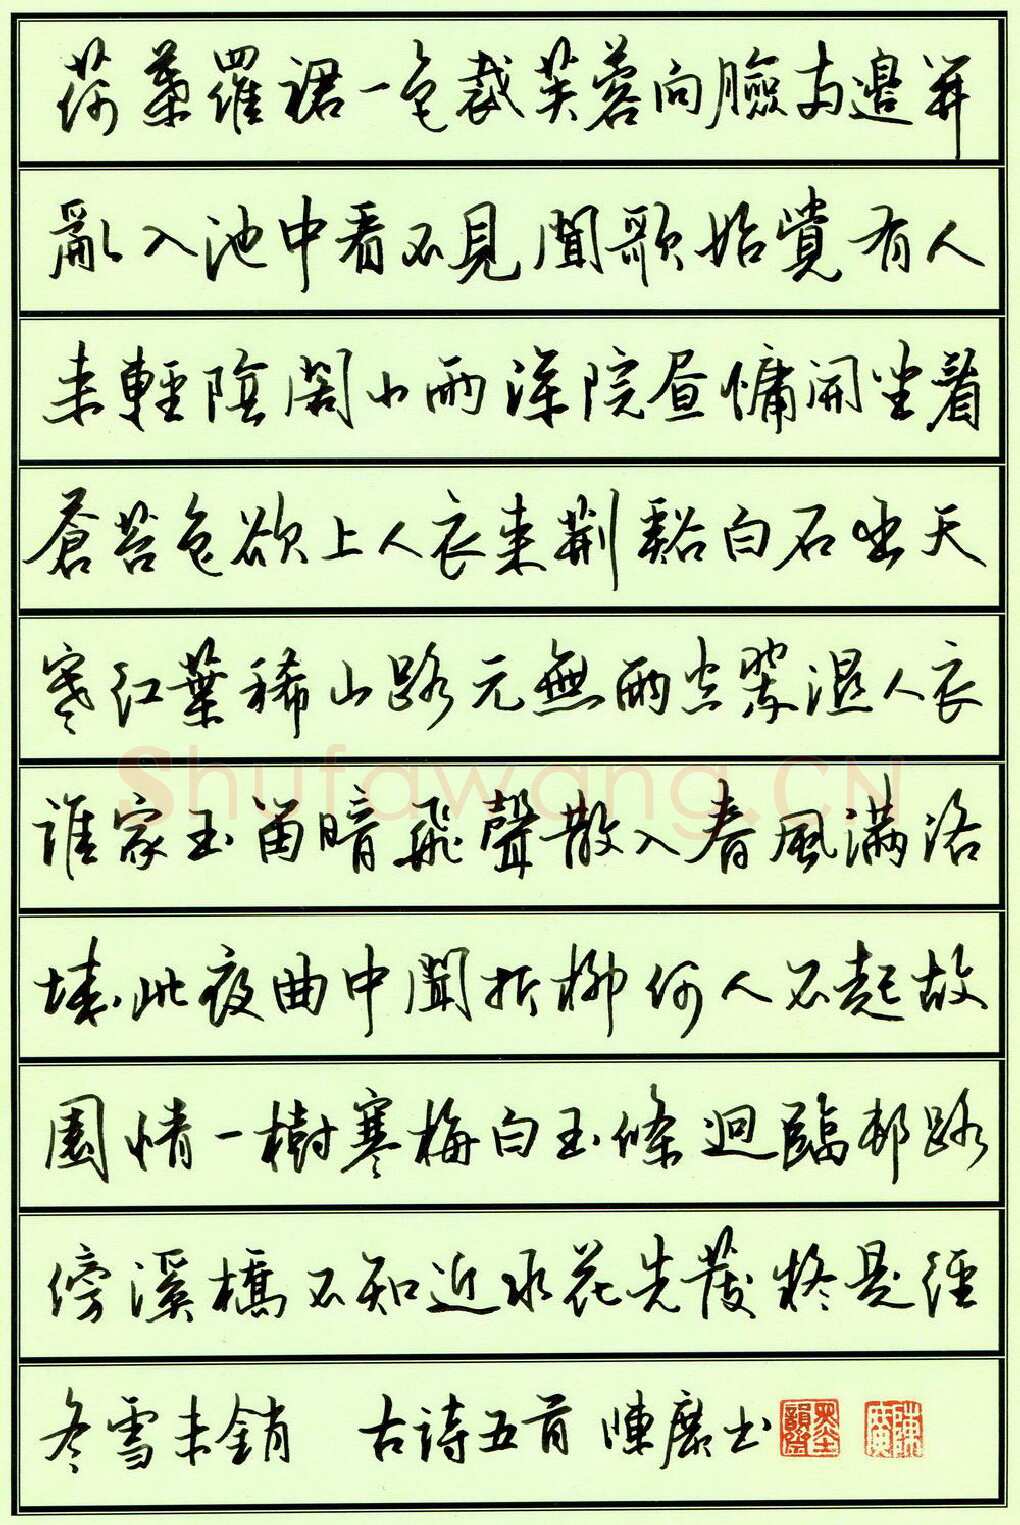 荷葉羅裙一色裁芙蓉向臉兩邊開
亂入池中看不見聞歌始覺有人
來輕陰閣小雨深院晝慵開坐看
蒼苔色欲上人衣來荆谿白石出天
寒紅葉稀山路元無雨空翠濕人衣
誰家玉笛暗飛聲散入春風滿洛
城此夜曲中聞折柳何人不起故
園情一樹寒梅白玉條迥臨邨路
傍溪橋不知近水花先發終是經
冬雪未銷 古詩五首 陳 書
Shufawang.CN